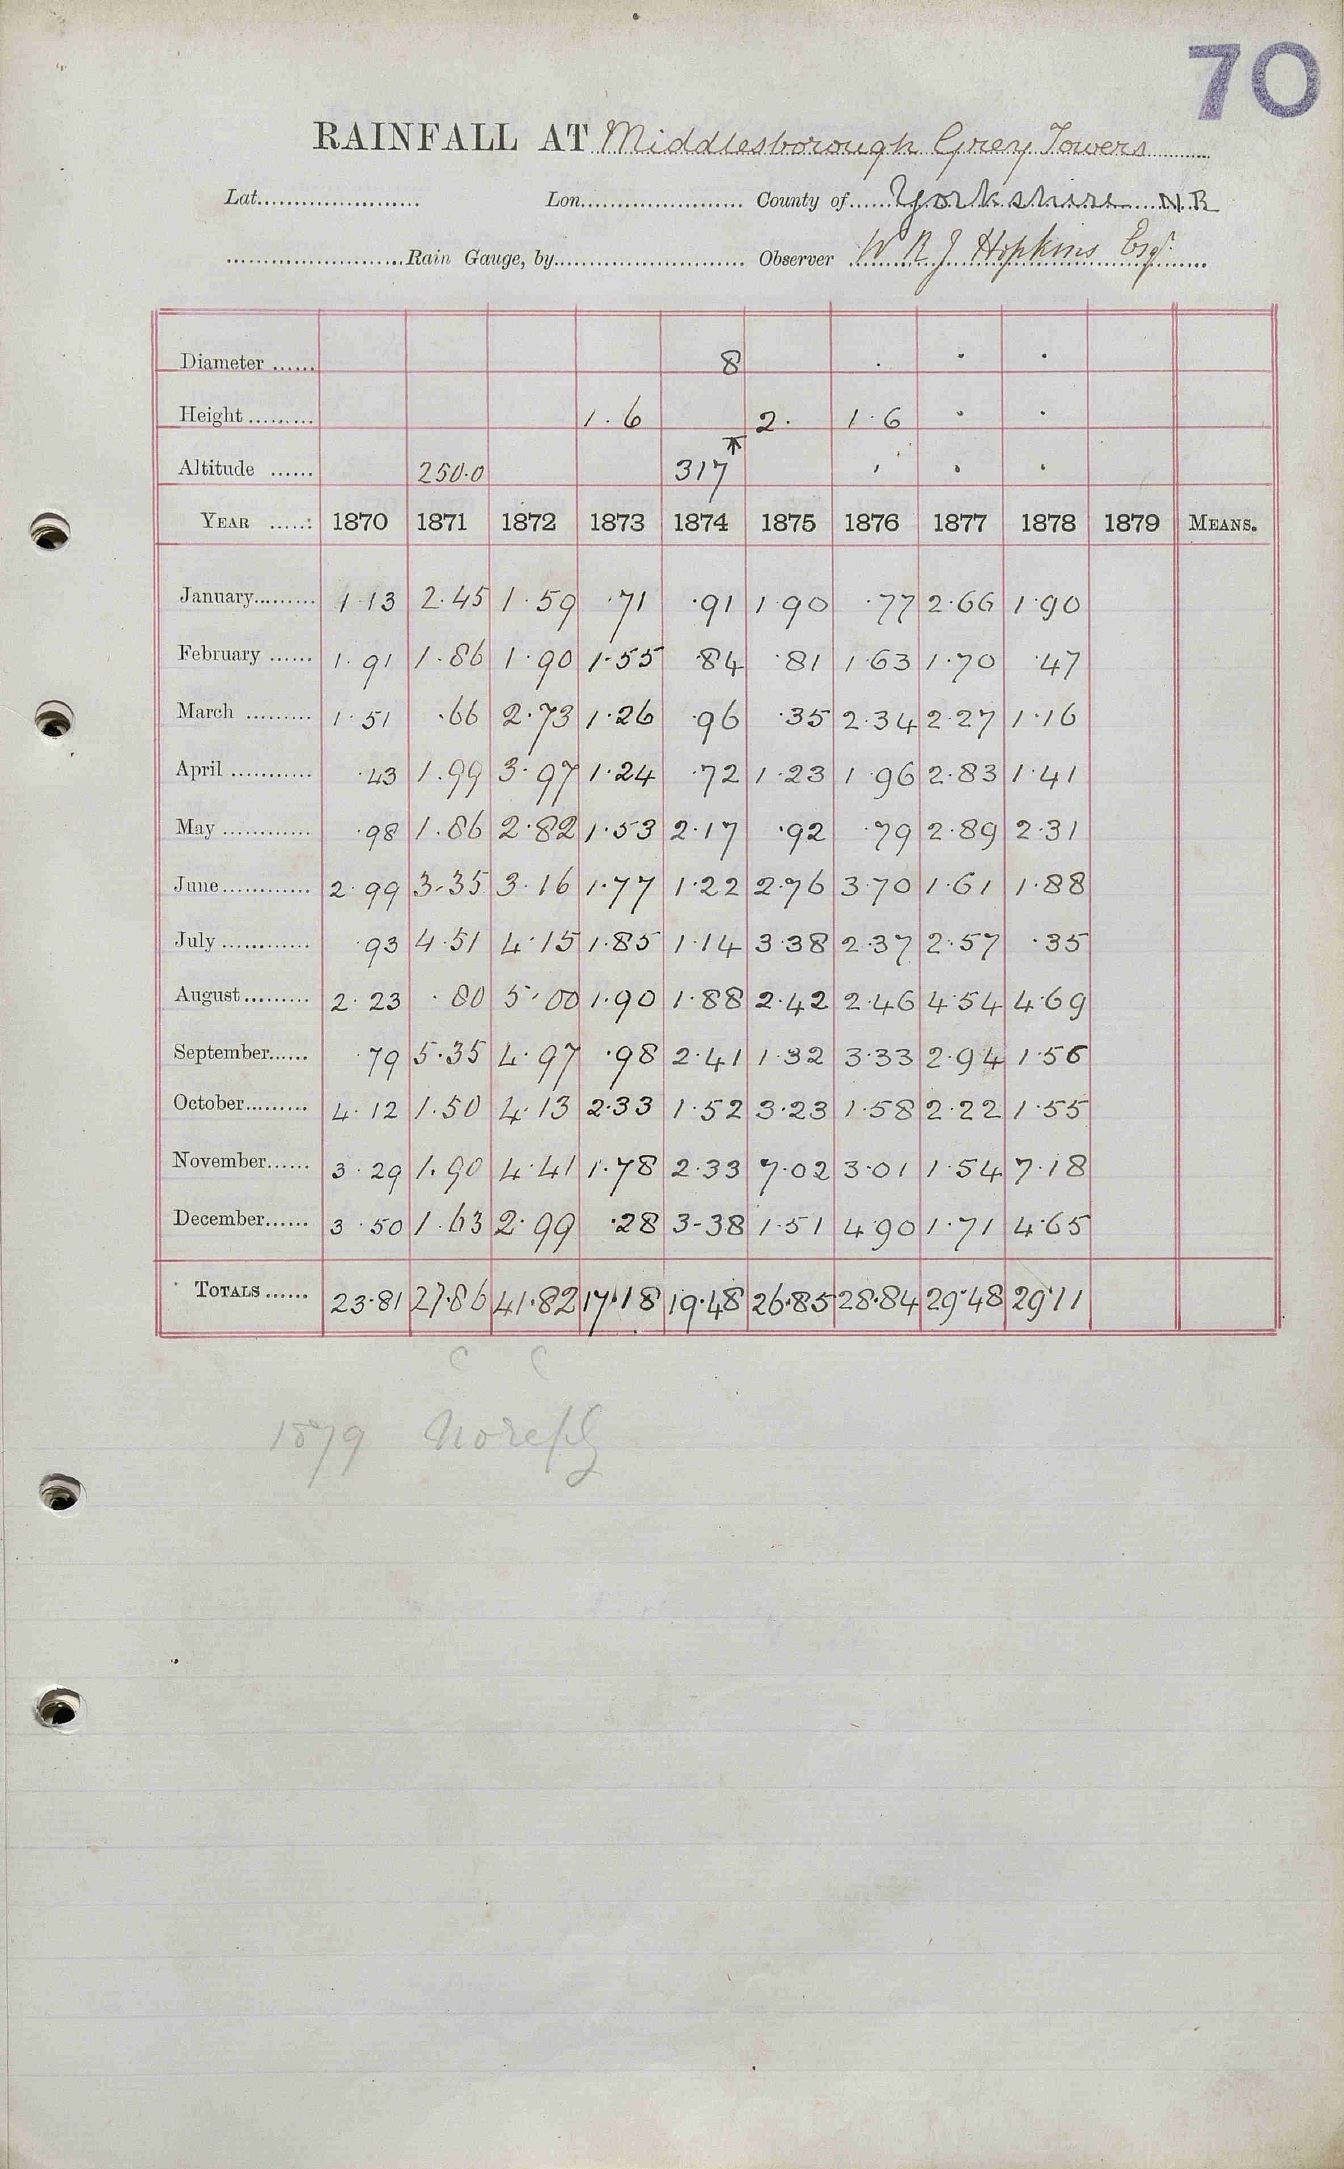 70
RAINFALL AT Middlesborough Grey Towers
Lat...................... Lon...................... County of Yorkshire N.R
........................Rain Gauge, by.......................... Observer W R J Hopkins Esqr.
Diameter ...... 8 . . .
Height ......... 1.6 2. 1.6 . .
Altitude ...... 250.0 317 . . .
YEAR .....: 1870 1871 1872 1873 1874 1875 1876 1877 1878 1879 MEANS.
January......... 1.13 2.45 1.59 .71 .91 1.90 .77 2.66 1.90
February ...... 1.91 1.86 1.90 1.55 .84 .81 1.63 1.70 .47
March ......... 1.51 .66 2.73 1.26 .96 .35 2.34 2.27 1.16
April ........... .43 1.99 3.97 1.24 .72 1.23 1.96 2.83 1.41
May ............ .98 1.86 2.82 1.53 2.17 .92 .79 2.89 2.31
June............ 2.99 3.35 3.16 1.77 1.22 2.76 3.70 1.61 1.88
July ............ .93 4.51 4.15 1.85 1.14 3.38 2.37 2.57 .35
August......... 2.23 .80 5.00 1.90 1.88 2.42 2.46 4.54 4.69
September...... .79 5.35 4.97 .98 2.41 1.32 3.33 2.94 1.56
October......... 4.12 1.50 4.13 2.33 1.52 3.23 1.58 2.22 1.55
November...... 3.29 1.90 4.41 1.78 2.33 7.02 3.01 1.54 7.18
December...... 3.50 1.63 2.99 .28 3.38 1.51 4.90 1.71 4.65
TOTALS ...... 23.81 27.86 41.82 17.18 19.48 26.85 28.84 29.48 29.11
C C
1879 No reply